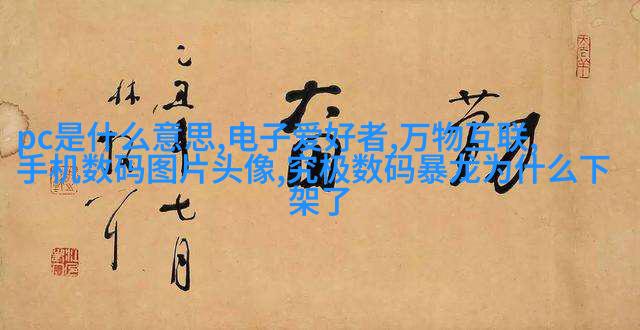 pc是什么意思,电子爱好者,万物互联,
手机数码图片头像,究极数码暴龙为什么下
架了
乙丑年七月
林